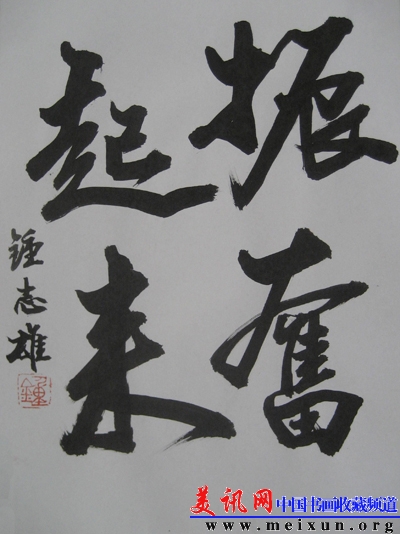 振奮
起来
鍾志雄
鍾
美讯网 中国书画收藏频道
www.meixun.org